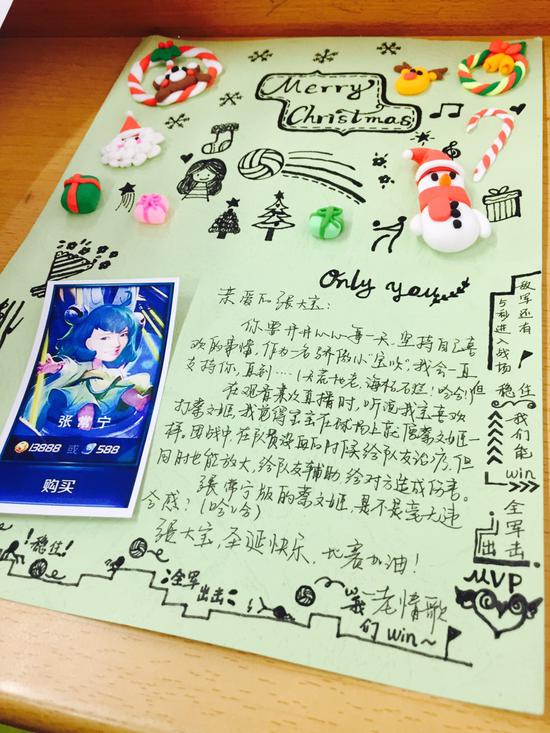 Merry
Christmas
Only you
亲爱的张大宝：
你要开开心心每一天，坚持自己喜
欢的事情，作为一名骄傲的小"宝吹"，我会一直
支持你，直到……(天荒地老，海枯石烂！哈哈)但
在观看来欢直播时，听闻我宝喜欢
打蔡文姬，我觉得宝宝在球场上就像蔡文姬一
样，团战中，在队员没血的时候给队友治疗，但
同时也能放大，给队友辅助，给对方造成伤害。
张常宁版的蔡文姬，是不是毫无违
合感？(哈哈)
张大宝，圣诞快乐，比赛加油！
老情歌
张常宁
13888 或 588
购买
敌军还有
5秒进入战场
稳住
我们能
win
全军
出击
MVP
稳住!
全军
出击
我
们win~